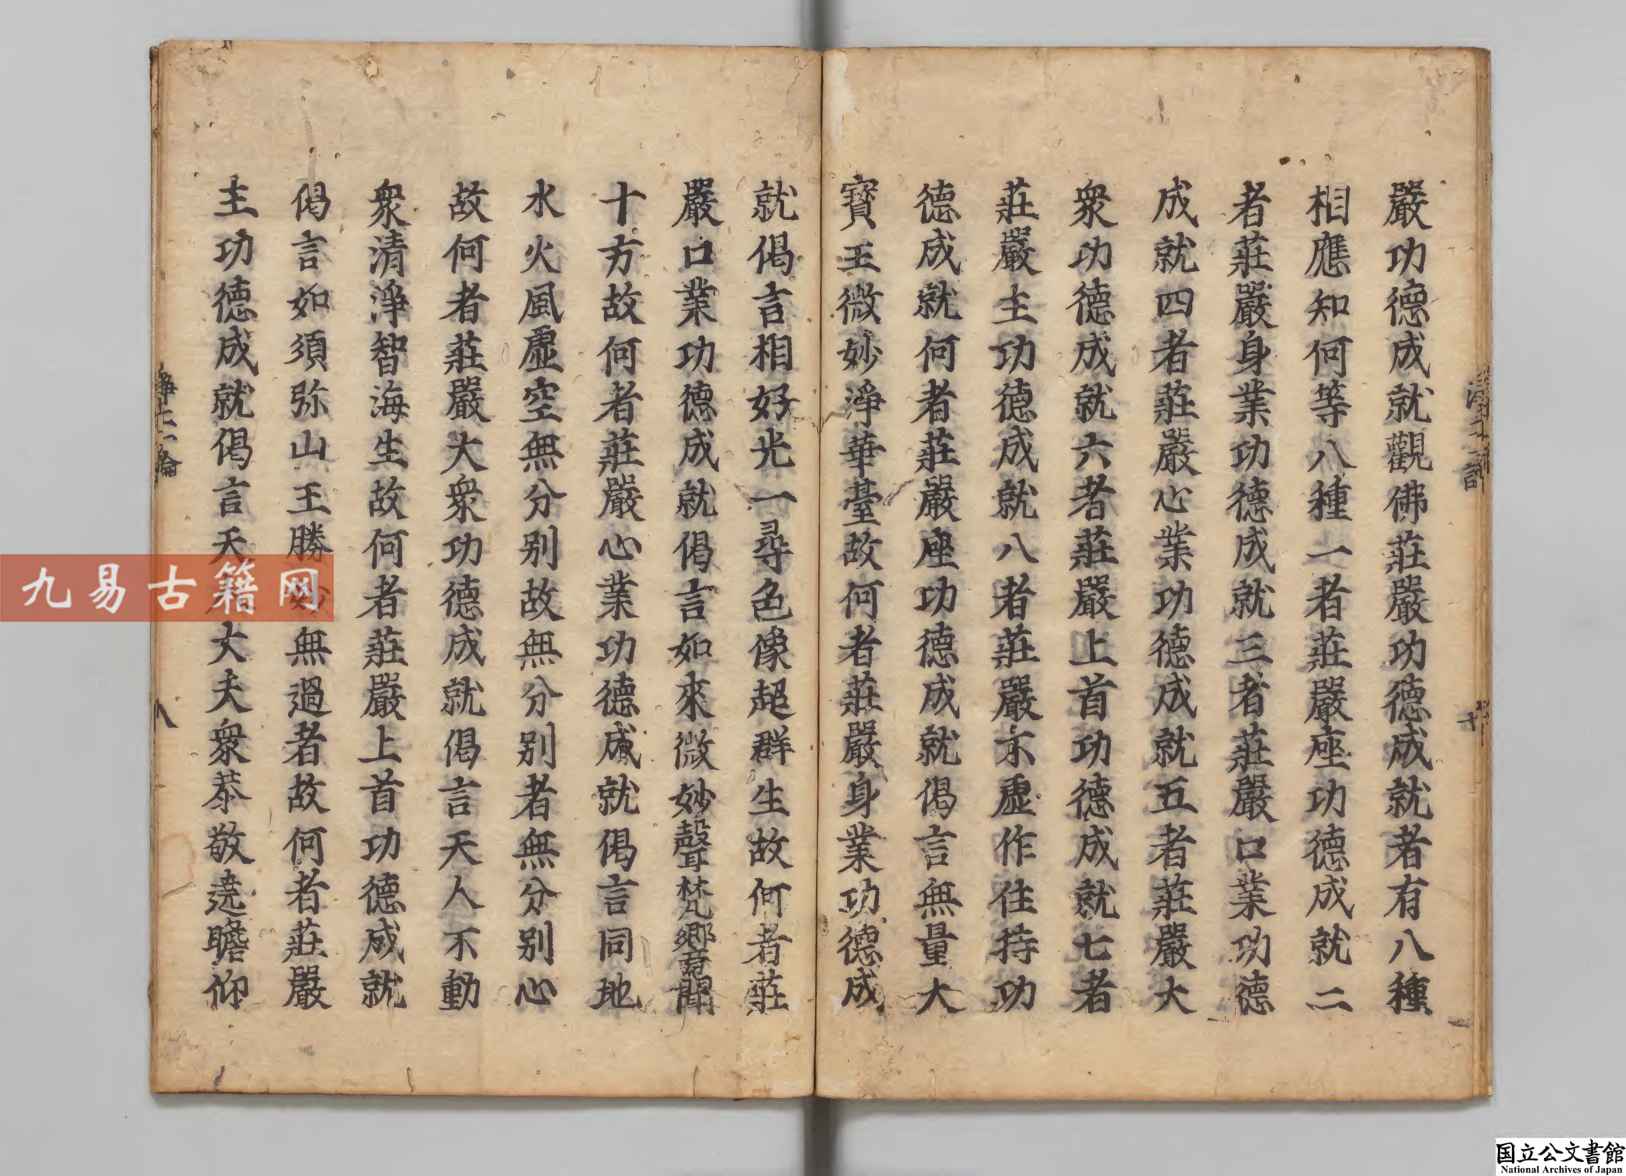 嚴功德成就觀佛莊嚴功德成就者有八種
相應知何等八種一者莊嚴座功德成就二
者莊嚴身業功德成就三者莊嚴口業功德
成就四者莊嚴心業功德成就五者莊嚴大
衆功德成就六者莊嚴上首功德成就七者
莊嚴主功德成就八者莊嚴不虛作住持功
德成就何者莊嚴座功德成就偈言無量大
寳王微妙淨華臺故何者莊嚴身業功德成
就偈言相好光一尋色像超群生故何者莊
嚴口業功德成就偈言如來微妙聲梵響聞
十方故何者莊嚴心業功德成就偈言同地
水火風虛空無分別故無分別者無分別心
故何者莊嚴大衆功德成就偈言天人不動
衆清淨智海生故何者莊嚴上首功德成就
偈言如須弥山王勝妙無過者故何者莊嚴
主功德成就偈言天人丈夫衆恭敬遶瞻仰
淨土論
八
九易古籍网
国立公文書館
National Archives of Japan